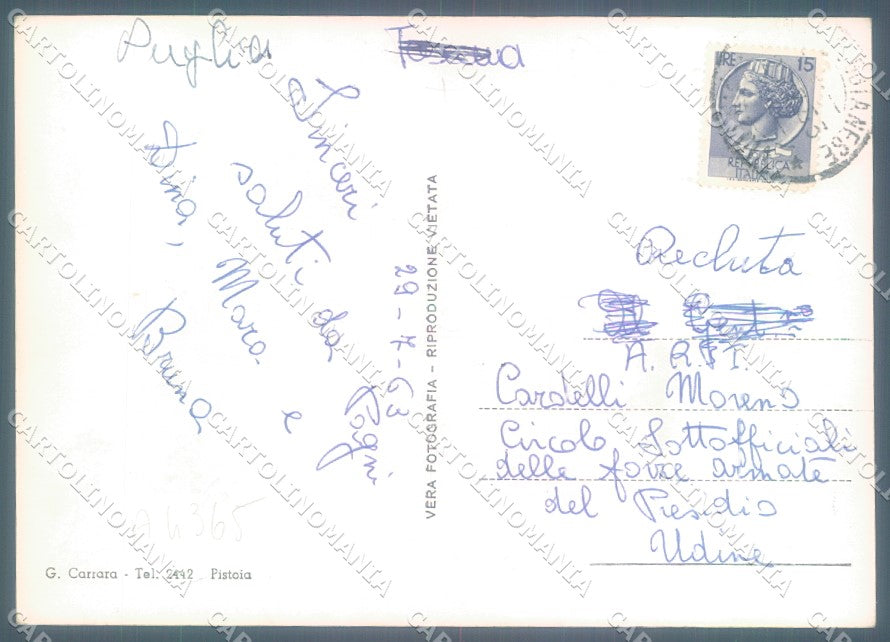 Puglia
Toscana
Sinceri
saluti da Pagni
Mara e
Dina, Bruna
29-7-63
VERA FOTOGRAFIA - RIPRODUZIONE VIETATA
LIRE 15
REPUBBLICA
ITALIANA
Recluta
A. R. P. T.
Cardelli Moreno
Circolo Sottofficiali
delle forze armate
del Presidio
Udine
A4365
G. Carrara - Tel. 2442 Pistoia
CARTOLINOMANIA